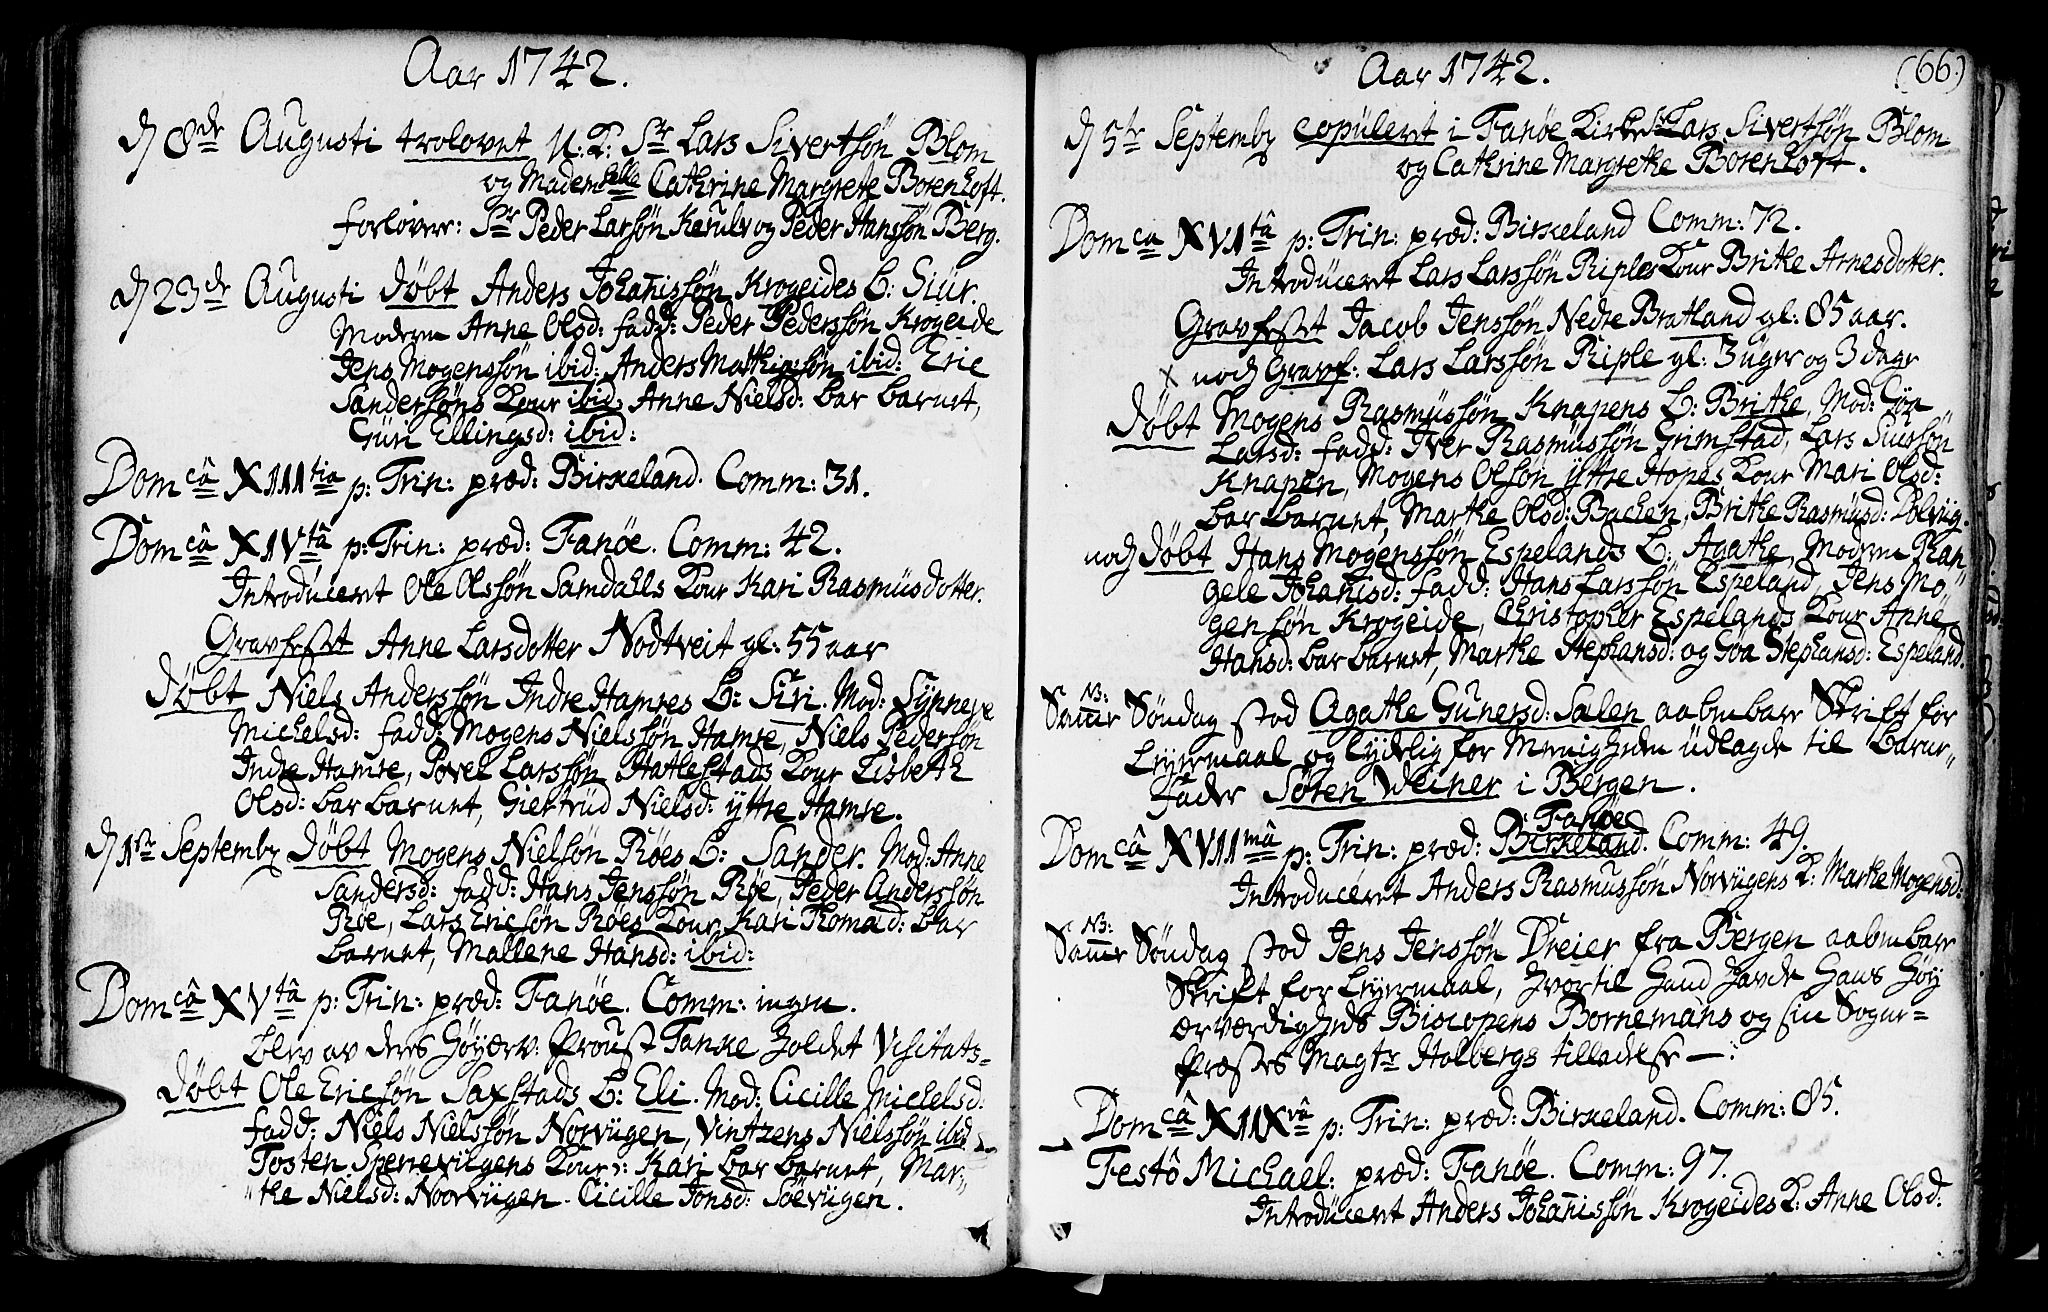 Aar 1742.
d 8de Augusti trolovet U. K: Sr Lars Sivertsøn Blom
og Mademselle Cathrine Margrete Botenhoft.
forlover: Sr Peder Larsøn Karulv og Peder Hansøn Berg.
d 23de Augusti døbt Anders Johanissøn Krogeides B: Siur.
Modern Anne Olsd: fadd: Peder Pederssøn Krogeide
Jens Mogenssøn ibid: Anders Mathiassøn ibid: Eric
Sandersøns Kour ibid: Anne Nielsd: bar barnet,
Guri Ellingsd: ibid:
Domcâ XIIItia p: Trin: præd: Birkeland. Comm: 31.
Domcâ XIVtâ p: Trin: præd: Fanöe. Comm: 42.
Introduceret Ole Olssøn Samdahls Kour Kari Rasmusdotter.
Gravfestet Anne Larsdotter Nodtveit gl: 55 aar
døbt Niels Anderssøn Indre Hamres B: Siri. Mod: Synneve
Michelsd: fadd: Mogens Nielssøn Hamre, Niels Pedersøn
Indre Hamre, Povel Larssøn Hatlestads Kour Lisbeth
Olsd: bar barnet, Giertrud Nielsd: yttre Hamre.
d 1ste Septembr døbt Mogens Nielsøn Röes B: Sander. Mod: Anne
Sandersd: fadd: Hans Jenssøn Röe, Peder Anderssøn
Röe, Lars Ericsøn Röes Kour Kari Thomad: bar
barnet, Mallene Hansd: ibid:
Domcâ XVtâ p: Trin: præd: Fanöe. Comm: ingen.
blev av deres Höyærv: Proust Tanke holdet Visitats-
døbt Ole Ericsøn Saxstads B: Eli. Mod: Cicille Michelsd:
fadd: Niels Nielssøn Norvügen, Vintzens Nielssøn ibid
Tosten Sperrevilgens Kour: Kari bar barnet, Mar-
the Nielsd: Noorvügen. Cicille Jonsd: Söevügen.
Aar 1742. (66.)
d 5te Septembr copuleret i Fanöe Kirke Sr Lars Sivertsøn Blom
og Cathrine Margrethe Botenhoft.
Domca XVItâ p: Trin: præd: Birkeland Comm: 72.
Introduceret Lars Larssøn Riples Kour Brithe Arnesdotter.
Gravfestet Jacob Jenssøn Nedre Bratland gl: 85 aar.
x noch Gravf: Lars Larssøn Riple gl: 3 uger og 3 dage
døbt Mogens Rasmussøn Knapens B: Brithe, Mod: Gön
Larsd: fadd: Iver Rasmussøn Grimstad, Lars Siurssøn
Knapen, Mogens Olsøn yttre Hopes Kour Mari Olsd:
bar barnet, Marthe Olsd: Backen, Brithe Rasmusd: Dolvüg.
noch døbt Hans Mogenssøn Espelands B: Agathe, Modern Ran-
gele Johanisd: fadd: Hans Larssøn Espeland, Jens Mo-
gensøn Krogeide, Christopher Espelands Kour Anne
Hansd: bar barnet, Marthe Stephansd: og Göa Stephansd: Espeland.
NB:
Samme Söndag stod Agathe Gunersd: Salen aabenbare Skrift for
Leyermaal og lydelig for Menigheden udlagde til barne-
fader Sören Weiner i Bergen.
Domcâ XVIImâ p: Trin: præd: Birkeland Fanöe. Comm: 49.
Introduceret Anders Rasmussøn Norvügens K: Marthe Mogensd:
NB:
Samme Söndag stod Jens Jenssøn Dreier fra Bergen aabenbare
Skrift for Leyermaal, hvortil hand havde Hans Höy
ærværdigheds Biscopens Bornemans og sin Sogne-
Præstes Magtr Holbergs tilladelse —:
Domcâ XIIXvâ p: Trin: præd: Birkeland. Comm: 85.
Festô Michael: præd: Fanöe. Comm: 97.
Introduceret Anders Johanissøn Krogeides K: Anne Olsd: